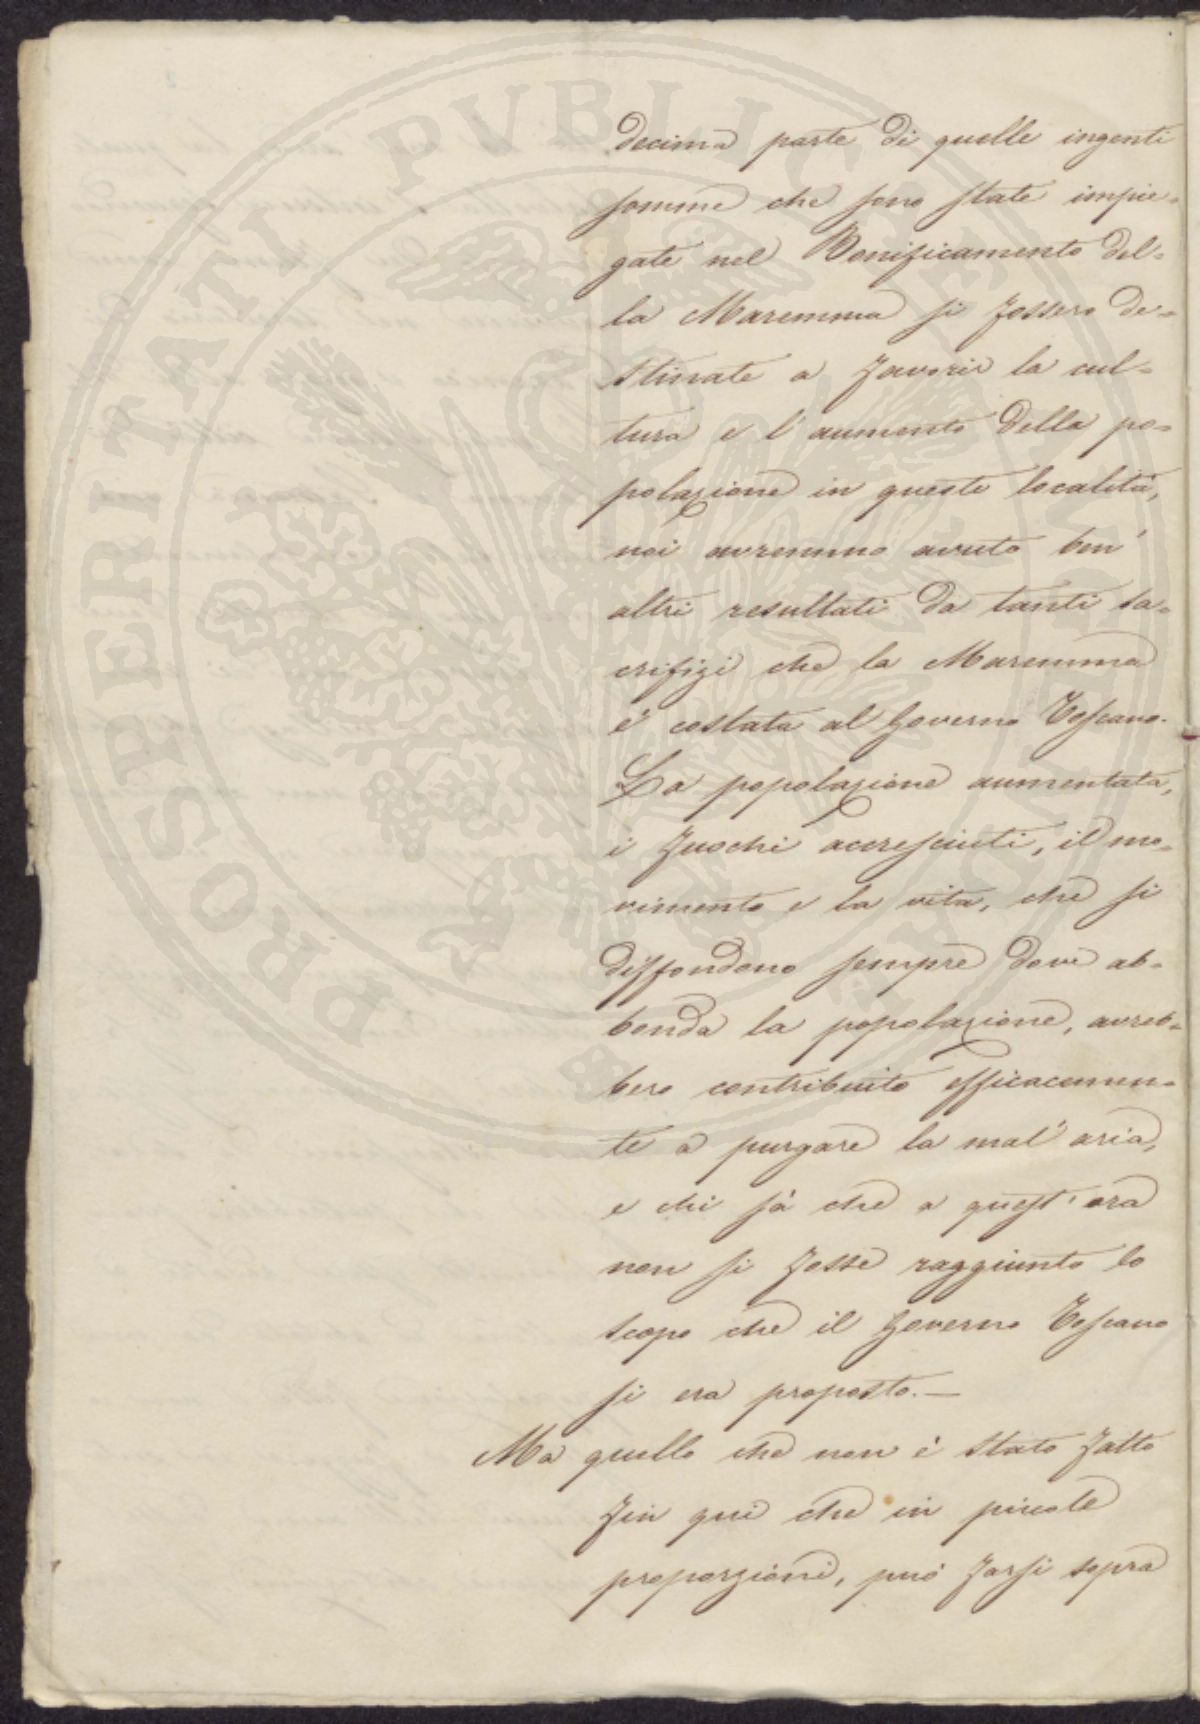 decima parte di quelle ingenti
somme che sono state impie=
gate nel Bonificamento del=
la Maremma si fossero de=
stinate a favorire la cul=
tura e l'aumento della po=
polazione in queste località,
noi avremmo avuto ben'
altri resultati da tanti sa=
crifizi che la Maremma
è costata al Governo Toscano.
La popolazione aumentata,
i fuochi accresciuti, il mo=
vimento e la vita, che si
diffondono sempre dove ab=
bonda la popolazione, avreb=
bero contribuito efficacemen=
te a purgare la mal'aria,
e chi sà che a quest'ora
non si fosse raggiunto lo
scopo che il Governo Toscano
si era proposto.—
Ma quello che non è stato fatto
fin qui che in piccole
proporzioni, può farsi sopra
PROSPERITATI PVBLICAE